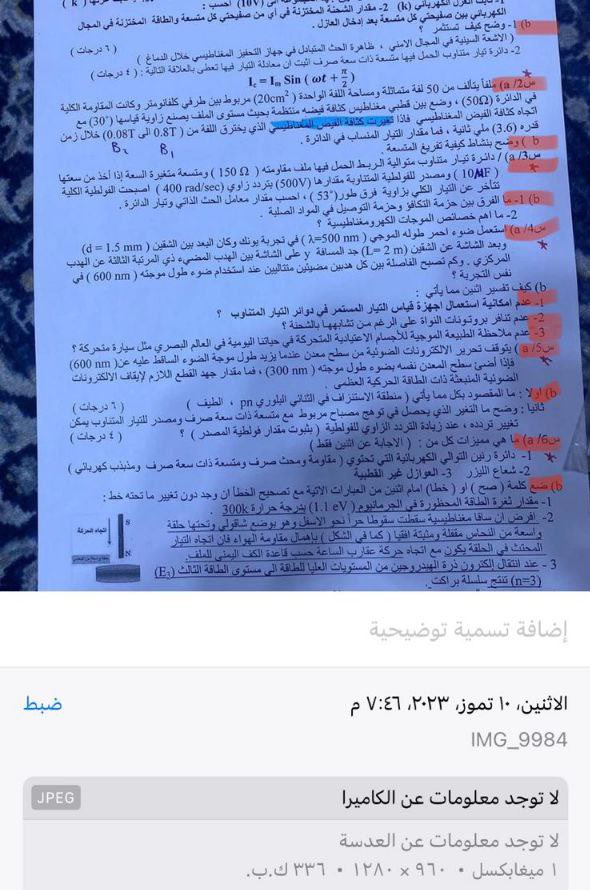 الكهربائي بين صفيحتي كل متسعة بعد إدخال العازل .
b) 1- وضح كيف تستثمر ؟
( الاشعة السينية في المجال الامني ، ظاهرة الحث المتبادل في جهاز التحفيز المغناطيسي خلال الدماغ ) ( ٦ درجات )
2- دائرة تيار متناوب الحمل فيها متسعة ذات سعة صرف اثبت ان معادلة التيار فيها تعطى بالعلاقة التالية : ( ٤ درجات )
I꜀ = Iₘ Sin ( ωt + π/2 )
س2/ a) ملفاً يتألف من 50 لفة متماثلة ومساحة اللفة الواحدة ( 20cm² ) مربوط بين طرفي كلفانومتر وكانت المقاومة الكلية
في الدائرة (50Ω) ، وضع بين قطبي مغناطيس كثافة فيضه منتظمة بحيث مستوى الملف يصنع زاوية قياسها (30°) مع
اتجاه كثافة الفيض المغناطيسي فاذا تغيرت كثافة الفيض المغناطيسي الذي يخترق اللفة من ( 0.8T الى 0.08T) خلال زمن
قدره (3.6) ملي ثانية ، فما مقدار التيار المنساب في الدائرة .
B₂ B₁
b ) وضح بنشاط كيفية تفريغ المتسعة .
س3/ a) / دائرة تيار متناوب متوالية الربط الحمل فيها ملف مقاومته ( 150 Ω ) ومتسعة متغيرة السعة إذا أخذ من سعتها
( 10μF ) ومصدر للفولطية المتناوبة مقدارها (500V) بتردد زاوي (400 rad/sec ) اصبحت الفولطية الكلية
تتأخر عن التيار الكلي بزاوية فرق طور(53° ) ، احسب مقدار معامل الحث الذاتي وتيار الدائرة .
b) 1- ما الفرق بين حزمة التكافؤ وحزمة التوصيل في المواد الصلبة .
2- ما اهم خصائص الموجات الكهرومغناطيسية ؟
س4/ a) استعمل ضوء احمر طوله الموجي ( λ=500 nm ) في تجربة يونك وكان البعد بين الشقين ( d = 1.5 mm )
وبعد الشاشة عن الشقين (L= 2 m) جد المسافة y على الشاشة بين الهدب المضيء ذي المرتبة الثالثة عن الهدب
المركزي . وكم تصبح الفاصلة بين كل هدبين مضيئين متتاليين عند استخدام ضوء طول موجته ( 600 nm ) في
نفس التجربة ؟
b) كيف تفسير اثنين مما يأتي :
1- عدم امكانية استعمال اجهزة قياس التيار المستمر في دوائر التيار المتناوب ؟
2- عدم تنافر بروتونات النواة على الرغم من تشابهها بالشحنة ؟
3- عدم ملاحظة الطبيعة الموجية للأجسام الاعتيادية المتحركة في حياتنا اليومية في العالم البصري مثل سيارة متحركة ؟
س5/ a) يتوقف تحرير الالكترونات الضوئية من سطح معدن عندما يزيد طول موجة الضوء الساقط عليه عن( 600 nm)
فإذا أضئ سطح المعدن نفسه بضوء طول موجته ( 300 nm ) ، فما مقدار جهد القطع اللازم لإيقاف الالكترونات
الضوئية المنبعثة ذات الطاقة الحركية العظمى .
b) اولا : ما المقصود بكل مما يأتي ( منطقة الاستنزاف في الثنائي البلوري pn ، الطيف ) ( ٦ درجات )
ثانيا : وضح ما التغير الذي يحصل في توهج مصباح مربوط مع متسعة ذات سعة صرف ومصدر للتيار المتناوب يمكن
تغيير تردده ، عند زيادة التردد الزاوي للفولطية ( بثبوت مقدار فولطية المصدر ) ؟ ( ٤ درجات )
س6/ a) ما هي مميزات كل من : ( الاجابة عن اثنين فقط )
1- دائرة رنين التوالي الكهربائية التي تحتوي ( مقاومة ومحث صرف ومتسعة ذات سعة صرف ومذبذب كهربائي )
2- شعاع الليزر 3- العوازل غير القطبية
b) ضع كلمة ( صح ) او ( خطا) امام اثنين من العبارات الاتية مع تصحيح الخطأ ان وجد دون تغيير ما تحته خط :
1- مقدار ثغرة الطاقة المحظورة في الجرمانيوم ( 1.1 eV ) بدرجة حرارة 300k .
2- افرض ان ساقا مغناطيسية سقطت سقوطا حرا نحو الاسفل وهو بوضع شاقولي وتحتها حلقة
واسعة من النحاس مقفلة ومثبتة افقيا ( كما في الشكل ) بإهمال مقاومة الهواء فان اتجاه التيار
المحتث في الحلقة يكون مع اتجاه حركة عقارب الساعة حسب قاعدة الكف اليمنى للملف.
اتجاه الحركة
S
N
3 - عند انتقال إلكترون ذرة الهيدروجين من المستويات العليا للطاقة الى مستوى الطاقة الثالث (E₃)
(n=3) تنتج سلسلة براكت.
إضافة تسمية توضيحية
الاثنين، ١٠ تموز، ٢٠٢٣، ٧:٤٦ م ضبط
IMG_9984
لا توجد معلومات عن الكاميرا JPEG
لا توجد معلومات عن العدسة
١ ميغابكسل • ٩٦٠ × ١٢٨٠ • ٣٣٦ ك.ب.